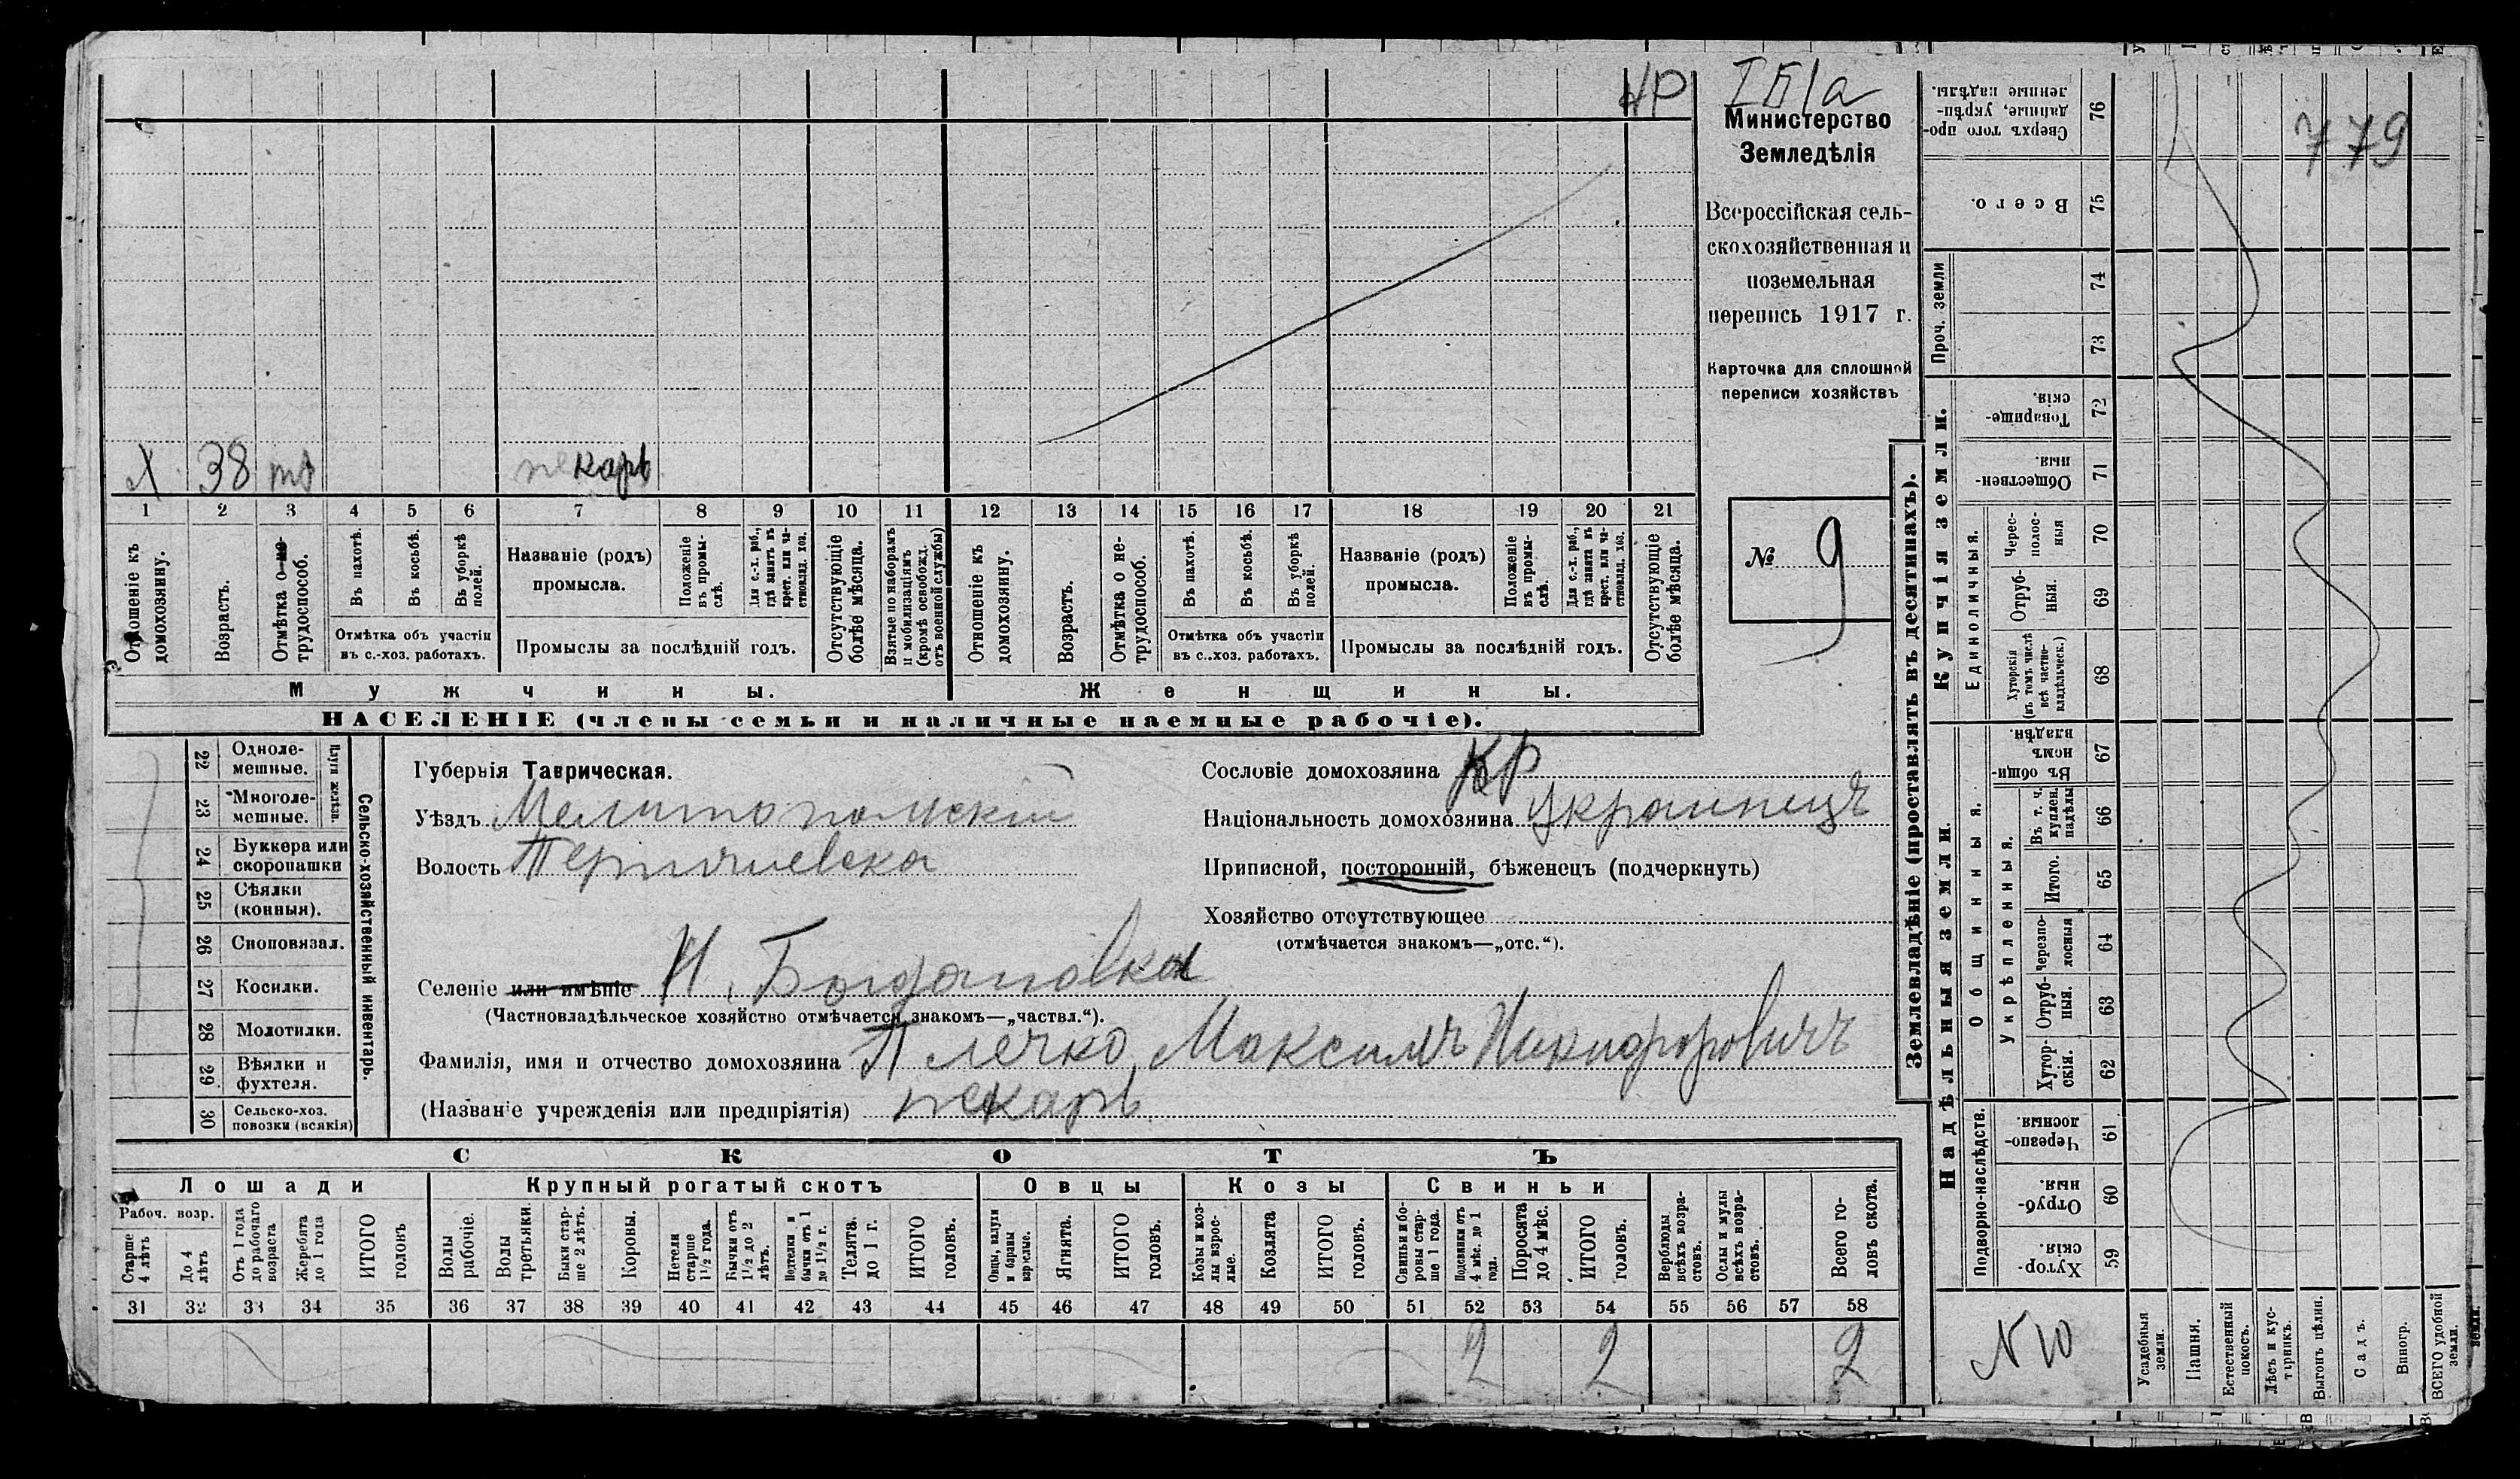 НР
I Б/а
779
Министерство
Земледѣлія
Всероссійская сель-
скохозяйственная и
поземельная
перепись 1917 г.
Карточка для сплошной
переписи хозяйствъ
№ 9
Х 38 пекарь
1 2 3 4 5 6 7 8 9 10 11 12 13 14 15 16 17 18 19 20 21
Отношеніе къ домохозяину.
Возрастъ.
Отмѣтка о не-трудоспособ.
Въ пахотѣ.
Въ косьбѣ.
Въ уборкѣ полей.
Отмѣтка объ участіи
въ с.-хоз. работахъ.
Названіе (родъ)
промысла.
Положеніе въ промы-слѣ.
Для с.-х. раб., гдѣ занятъ въ крест. или ча-стновлад. хоз.
Промыслы за послѣдній годъ.
Отсутствующіе болѣе мѣсяца.
Взятые по наборамъ и мобилизаціямъ (кромѣ освобожд. отъ военной службы)
Отношеніе къ домохозяину.
Возрастъ.
Отмѣтка о не-трудоспособ.
Въ пахотѣ.
Въ косьбѣ.
Въ уборкѣ полей.
Отмѣтка объ участіи
въ с.-хоз. работахъ.
Названіе (родъ)
промысла.
Положеніе въ промы-слѣ.
Для с.-х. раб., гдѣ занята въ крест. или ча-стновлад. хоз.
Промыслы за послѣдній годъ.
Отсутствующіе болѣе мѣсяца.
Мужчины. Женщины.
НАСЕЛЕНІЕ (члены семьи и наличные наемные рабочіе).
Сельско-хозяйственный инвентарь.
Плуги желѣзн.
22 Одноле-мешные.
23 Многоле-мешные.
24 Буккера или скоропашки
25 Сѣялки (конныя).
26 Сноповязал.
27 Косилки.
28 Молотилки.
29 Вѣялки и фухтеля.
30 Сельско-хоз. повозки (всякія)
Губернія Таврическая.
Уѣздъ Мелитопольскій
Волость
Сословіе домохозяина кр
Національность домохозяина Украинецъ
Приписной, посторонній, бѣженецъ (подчеркнуть)
Хозяйство отсутствующее
(отмѣчается знакомъ—„отс.“).
Селеніе или имѣніе Н. Богдановка
(Частновладѣльческое хозяйство отмѣчается знакомъ—„частвл.“).
Фамилія, имя и отчество домохозяина Плечко Максимъ Никифоровичъ
(Названіе учрежденія или предпріятія) пекарь
СКОТЪ
Лошади Крупный рогатый скотъ Овцы Козы Свиньи
Рабоч. возр.
Старше 4 лѣтъ
До 4 лѣтъ
Отъ 1 года до рабочаго возраста
Жеребята до 1 года
ИТОГО головъ
Волы рабочіе.
Волы третьяки.
Быки стар-ше 2 лѣтъ.
Коровы.
Нетели старше 1½ года.
Бычки отъ 1½ до 2 лѣтъ.
Нетелки и бычки отъ 1 до 1½ г.
Телята. до 1 г.
ИТОГО головъ.
Овцы, валухи и бараны взрослые.
Ягнята.
ИТОГО головъ.
Козы и коз-лы взрос-лые.
Козлята
ИТОГО головъ.
Свиньи и бо-ровы стар-ше 1 года.
Подсвинки отъ 4 мѣс. до 1 года.
Поросята до 4 мѣс.
ИТОГО головъ.
Верблюды всѣхъ возра-стовъ.
Ослы и мулы всѣхъ возра-стовъ.
Всего го-ловъ скота.
31 32 33 34 35 36 37 38 39 40 41 42 43 44 45 46 47 48 49 50 51 52 53 54 55 56 57 58
2 2 2
Землевладѣніе (проставлять въ десятинахъ).
Купчія земли.
Надѣльныя земли.
Сверхъ того про-данные, укрѣп-ленные надѣлы. 76
Всего. 75
Проч. земли 74 73
Товарище-скія. 72
Обществен-ныя. 71
Единоличныя.
Черес-полос-ныя 70
Отруб-ныя. 69
Хуторскія (въ томъ числѣ всѣ частно-владѣльческ.) 68
Общинныя.
Въ общин-номъ владѣн. 67
Укрѣпленныя.
Въ т. ч. куплен. надѣлы 66
Итого. 65
Черезпо-лосныя 64
Отруб-ныя. 63
Хутор-скія. 62
Подворно-наслѣдств.
Черезпо-лосныя 61
Отруб-ныя. 60
Хутор-скія. 59
N 10
Усадебныя земли.
Пашня.
Естественный покосъ.
Лѣсъ и кус-тарникъ.
Выгонъ цѣлин.
Садъ.
Виногр.
ВСЕГО удобной земли.